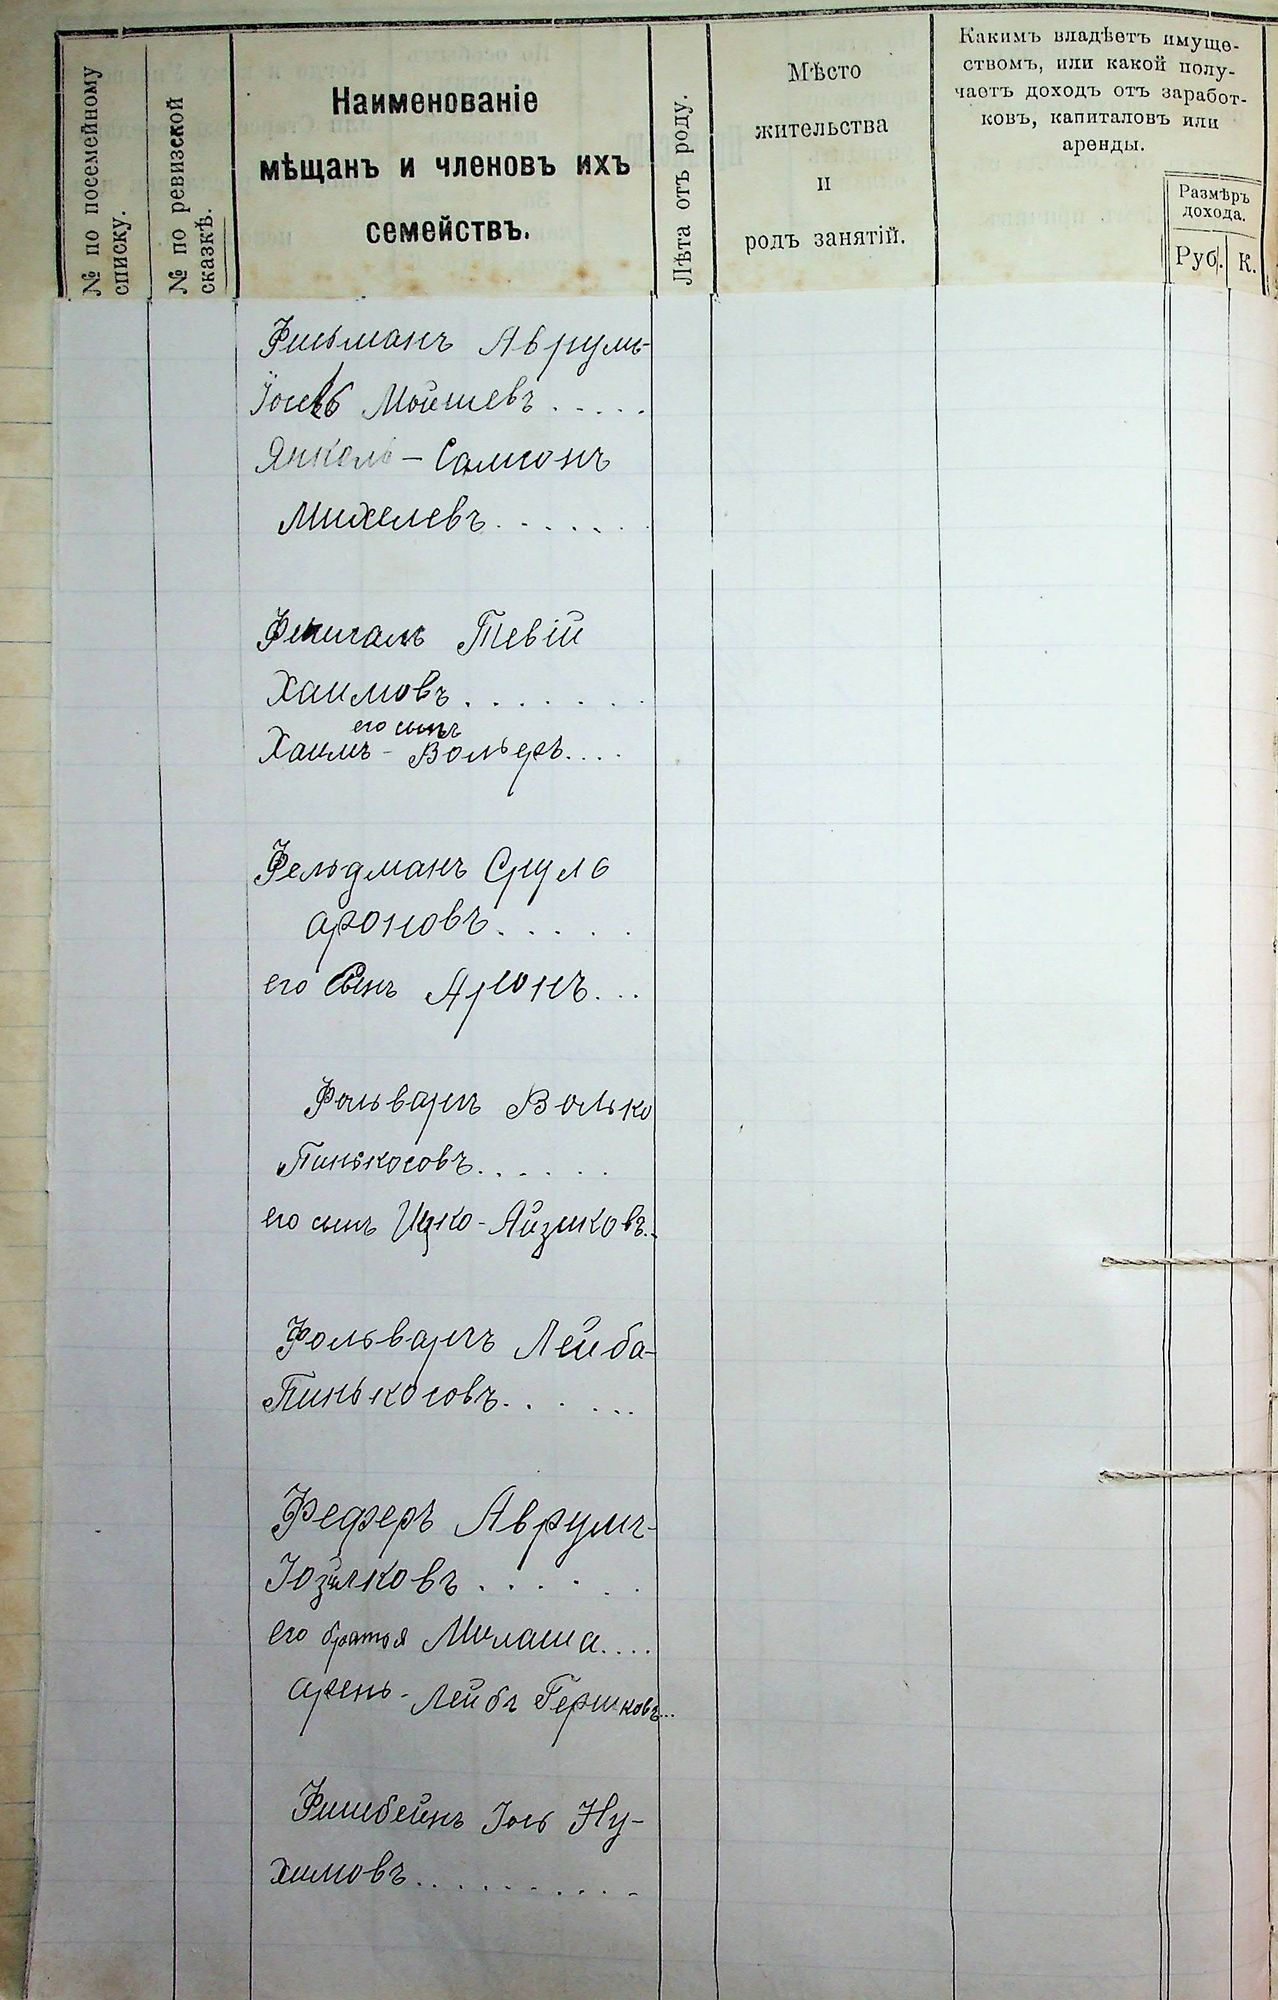 № по посемейному
списку.
№ по ревизской
сказкѣ.
Наименованіе
мѣщанъ и членовъ ихъ
семействъ.
Лѣта отъ роду.
Мѣсто
жительства
и
родъ занятій.
Какимъ владѣетъ имуще-
ствомъ, или какой полу-
чаетъ доходъ отъ заработ-
ковъ, капиталовъ или
аренды.
Размѣръ
дохода.
Руб.
К.
Фишманъ Аврумъ-
Іось Мошкевъ .....
Янкель - Самсонъ
Михелевъ .......
Тевій
Хаимовъ .......
его сынъ
Хаимъ - Вольфъ....
Фельдманъ Сруль
Ароновъ .....
его Сынъ Аронъ...
Фольваргъ Волько
Пинькосовъ......
его сынъ Ицко - Айзиковъ..
Фольваргъ Лейба-
Пинькосовъ......
Феферъ Аврумъ-
Іозилковъ ......
его братья Милаша....
Арень - Лейбъ Гершковъ...
Фишбейнъ Іось Ну-
химовъ..........